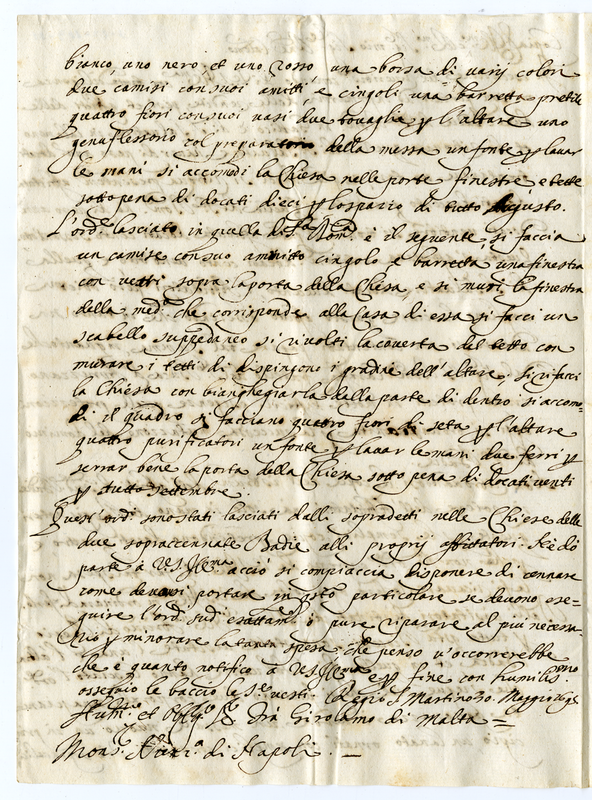 bianco, uno nero, et uno rosso una borsa di varij colori
due camisi con suoi amitti, e cingoli una barretta pretile
quattro fiori con suoi vasi due tovaglie p l'altare uno
genuflessorio col preparatorio della messa un fonte p lavar
le mani si accomodi la Chiesa nelle porte finestre, e tetto
sotto pena di docati dieci p lo spazio di tutto Augusto.
L'ord.e lasciato in quella di S.ta è il seguente si faccia
un camise con suo amitto cingolo e barretta una finestra
con vetri sopra la porta della Chiesa, e si muri la finestra
della med.ma che corrisponde alla Casa di essa si facci un
scabello suppedaneo si rivolti la coverta del tetto con
murare i tetti di dipingono i gradini dell'altare; si rifacci
la Chiesa con biangheggiarla dalla parte di dentro si accom=
di il quadro si facciano quattro fiori di seta p l'altare
quattro purificatori un fonte p lavar le mani due ferri p
serrar bene la porta della Chiesa sotto pena di docati venti
p tutto settembre.
Quest'ord.i sono stati lasciati dalli sopradetti nelle Chiese delle
due sopraccennate Badie alli proprij affittatori. Ne dò
parte à V.S. Ill.ma acciò si compiaccia disponere di cennare
come devonsi portare in q.sto particolare se devono ese=
guire l'ord.i sud.i esattam.e o pure riparare al più necessa=
rio p minorare la tanta spesa, che penso v'occorrebbe
che è quanto notifico à V.S. Ill.ma e p fine con humilis.mo
ossequio le baccio le S.e vesti. S. Martino 30. Maggio
Hum.mo et Oblig.mo S.re Frà Girolamo di Malta =
Mons. di Napoli. —